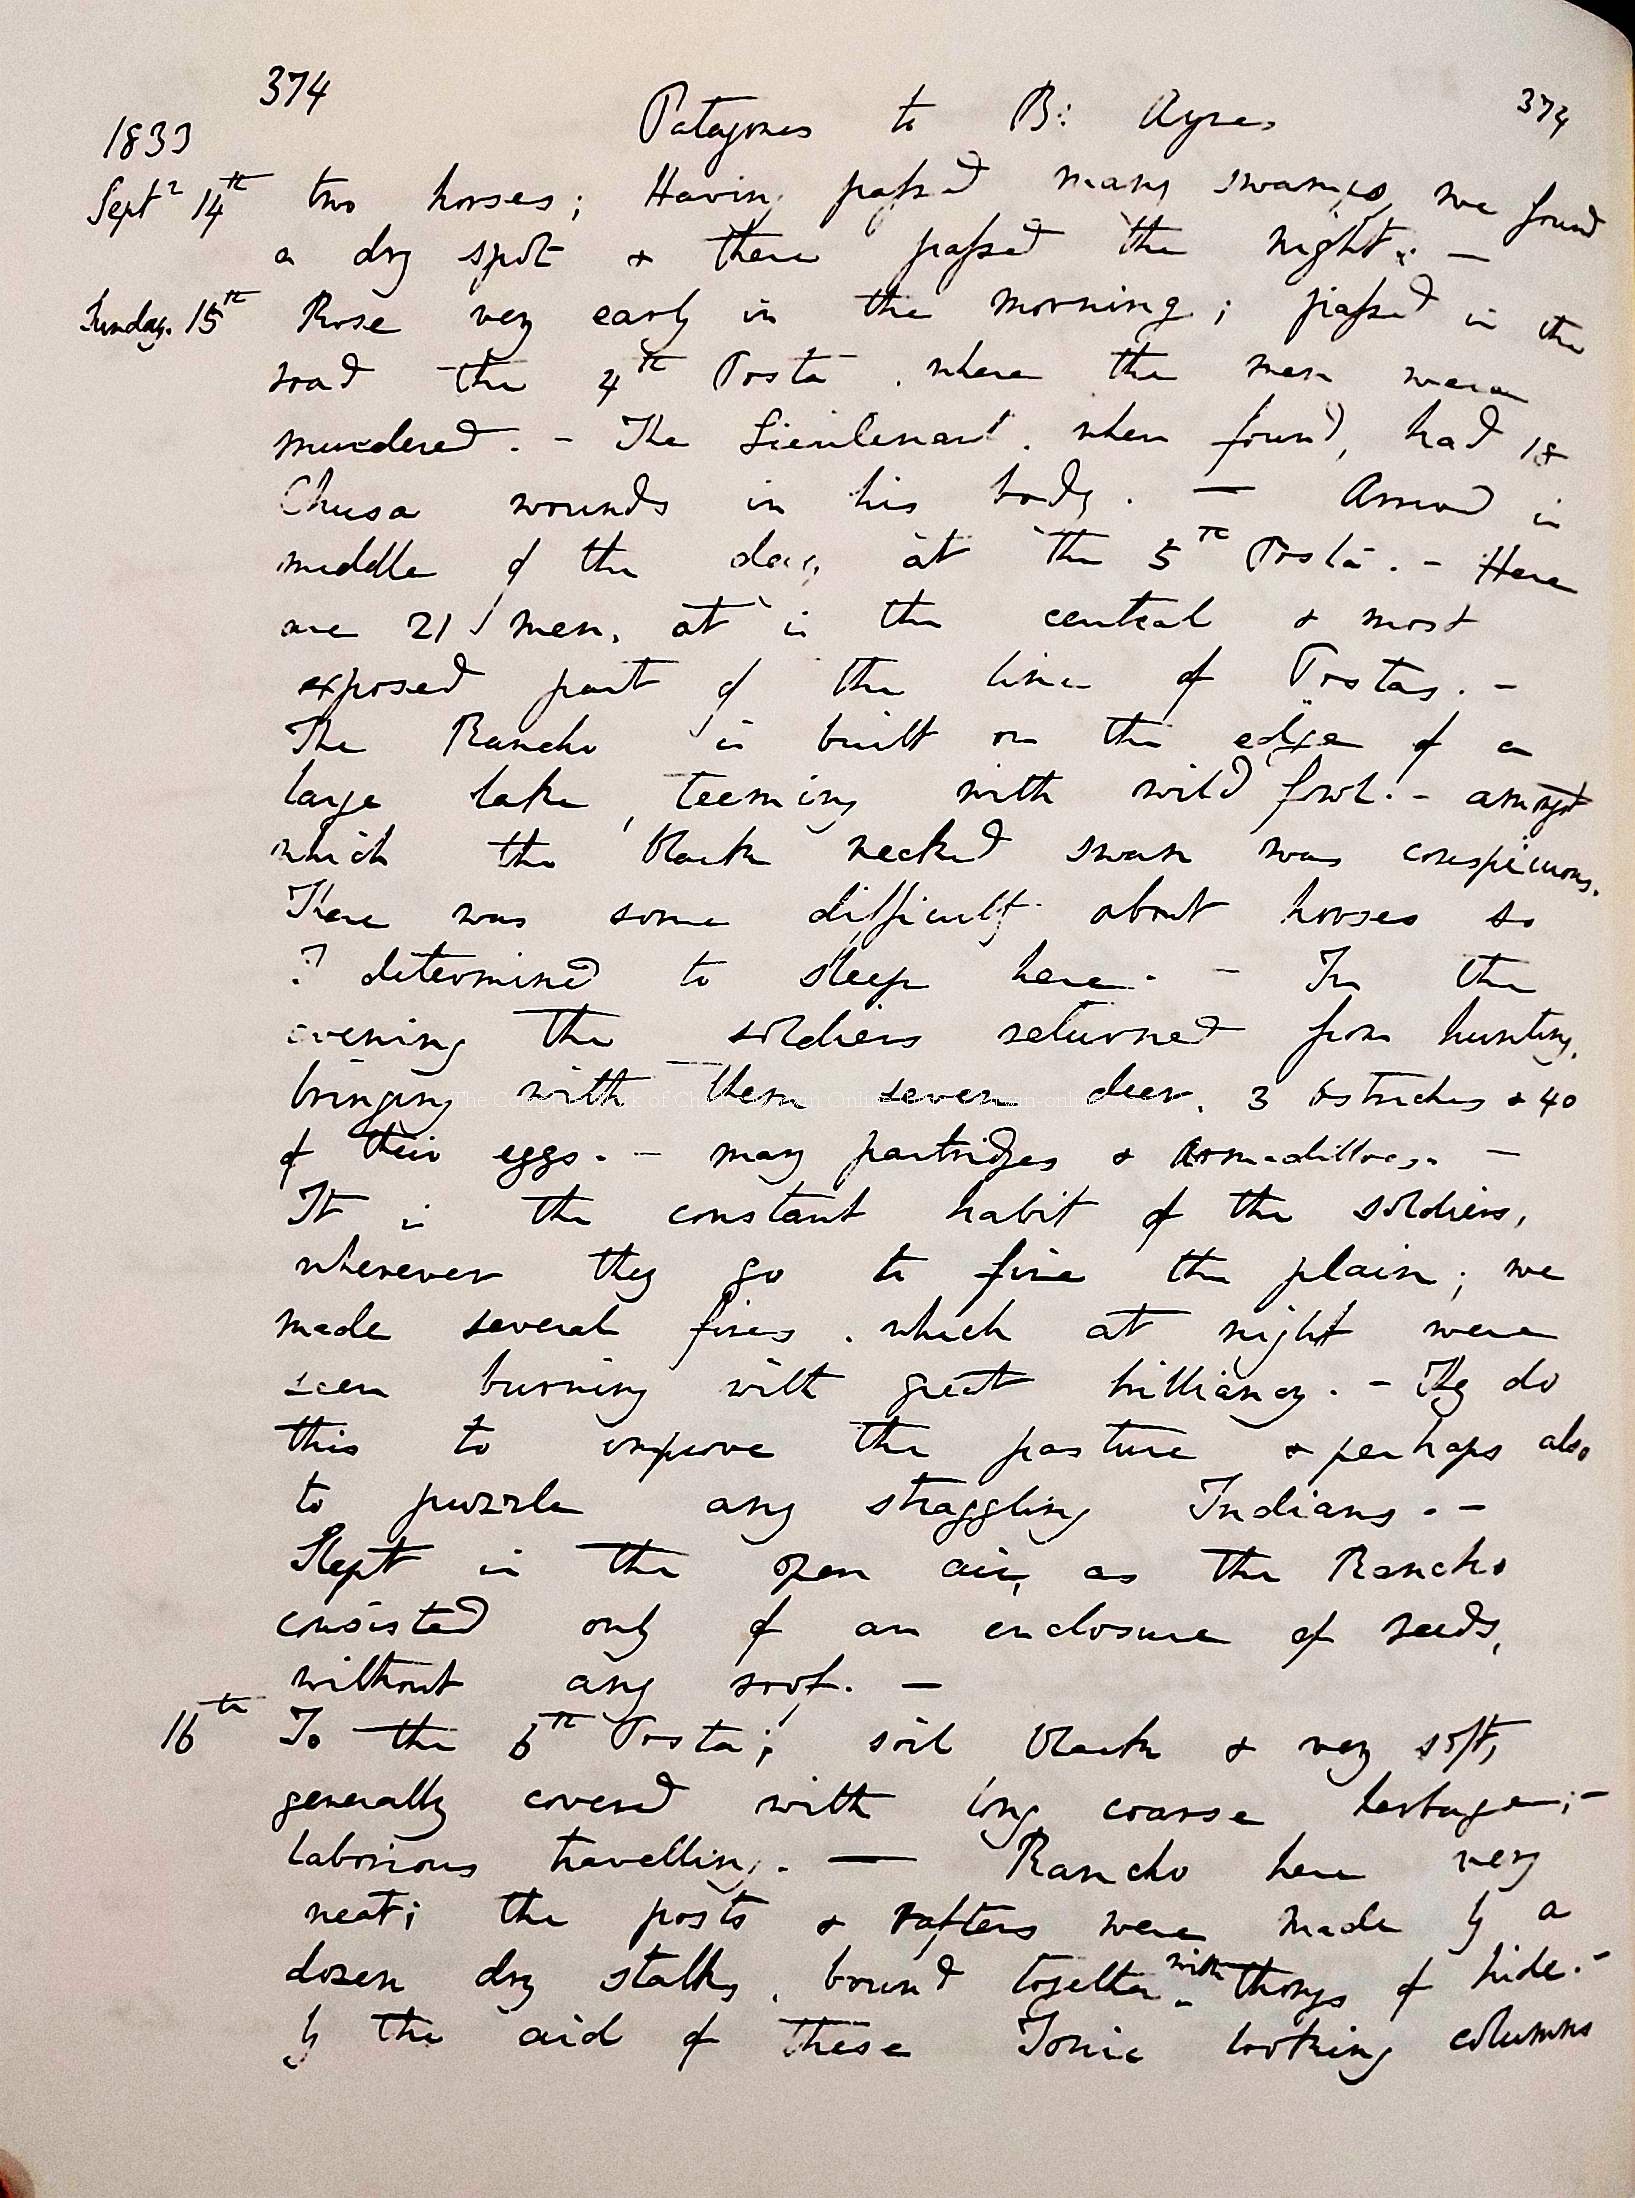 374
Patagones to B: Ayres
374
1833
Septr 14th two horses; Having passed many swamps, we found
a dry spot & there passed the night. —
Sunday. 15th Rose very early in the morning; passed in the
road the 4th Posta, where the men were
murdered. - The Lieutenant, when found, had 18
Chusa wounds in his body. — Arrived in
middle of the day at the 5th Posta. - Here
are 21 men, at is the central & most
exposed part of the line of Postas. -
The Rancho is built on the edge of a
large lake, teeming with wild fowl. - amongst
which the black necked swan was conspicuous.
There was some difficulty about horses so
I determined to sleep here. - In the
evening the soldiers returned from hunting,
bringing with them seven deer, 3 ostriches & 40
of their eggs. - many partridges & Armadilloes. -
It is the constant habit of the soldiers,
wherever they go to fire the plain; we
made several fires, which at night were
seen burning with great brilliancy. - They do
this to improve the pasture & perhaps also
to puzzle any straggling Indians. -
Slept in the open air, as the Rancho
consisted only of an enclosure of reeds,
without any roof. —
16th To the 6th Posta; soil black & very soft,
generally covered with long coarse herbage; -
laborious travelling. — Rancho here very
neat; the posts & rafters were made by a
dozen dry stalks, bound together with thongs of hide. -
by the aid of these Ionic looking columns